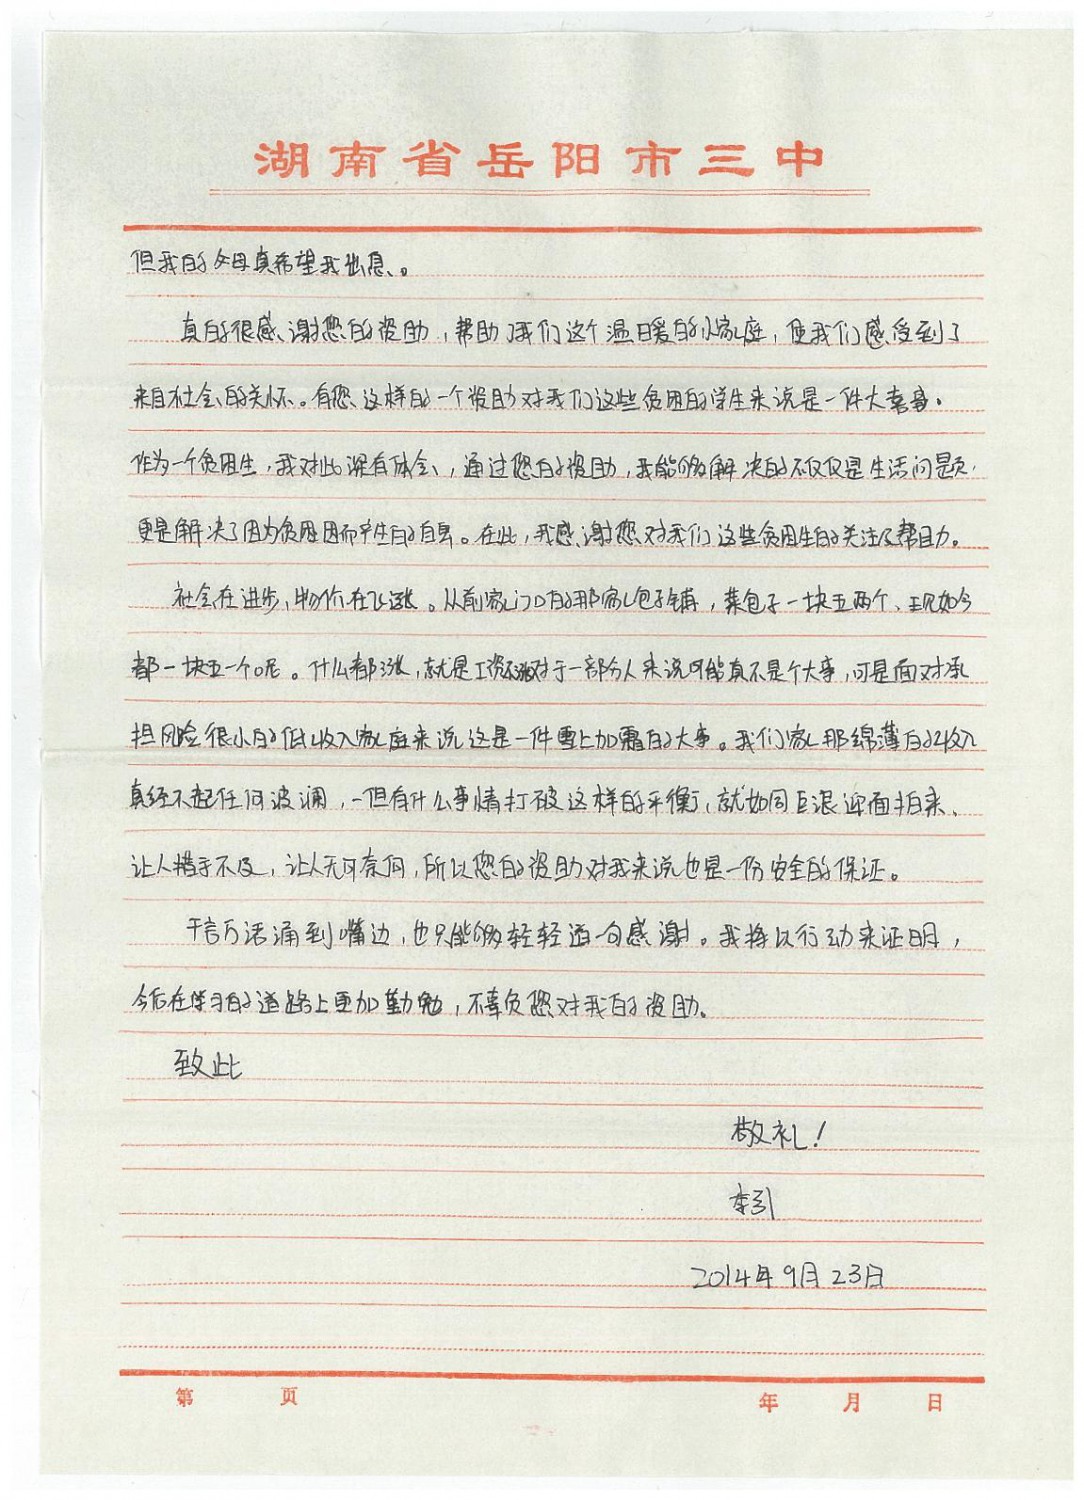 湖南省岳阳市三中
但我的父母真希望我出息。
真的很感谢您的资助，帮助了我们这个温暖的小家庭，使我们感受到了
来自社会的关怀。有您这样的一个资助对我们这些贫困的学生来说是一件大喜事。
作为一个贫困生，我对此深有体会，通过您的资助，我能够解决的不仅仅是生活问题，
更是解决了因为贫困因而产生的自卑。在此，我感谢您对我们这些贫困生的关注及帮助。
社会在进步，物价在飞涨。从前家门口的那家包子铺，菜包子一块五两个、现如今
都一块五一个呢。什么都涨，就是工资不涨对于一部分人来说可能真不是个大事，可是面对承
担风险很小的低收入家庭来说这是一件雪上加霜的大事。我们家那绵薄的收入
真经不起任何波澜，一但有什么事情打破这样的平衡，就如同巨浪迎面拍来，
让人措手不及，让人无可奈何，所以您的资助对我来说也是一份安全的保证。
千言万语涌到嘴边，也只能够轻轻道一句感谢。我将以行动来证明，
今后在学习的道路上更加勤勉，不辜负您对我的资助。
致此
敬礼！
2014年9月23日
第 页 年 月 日